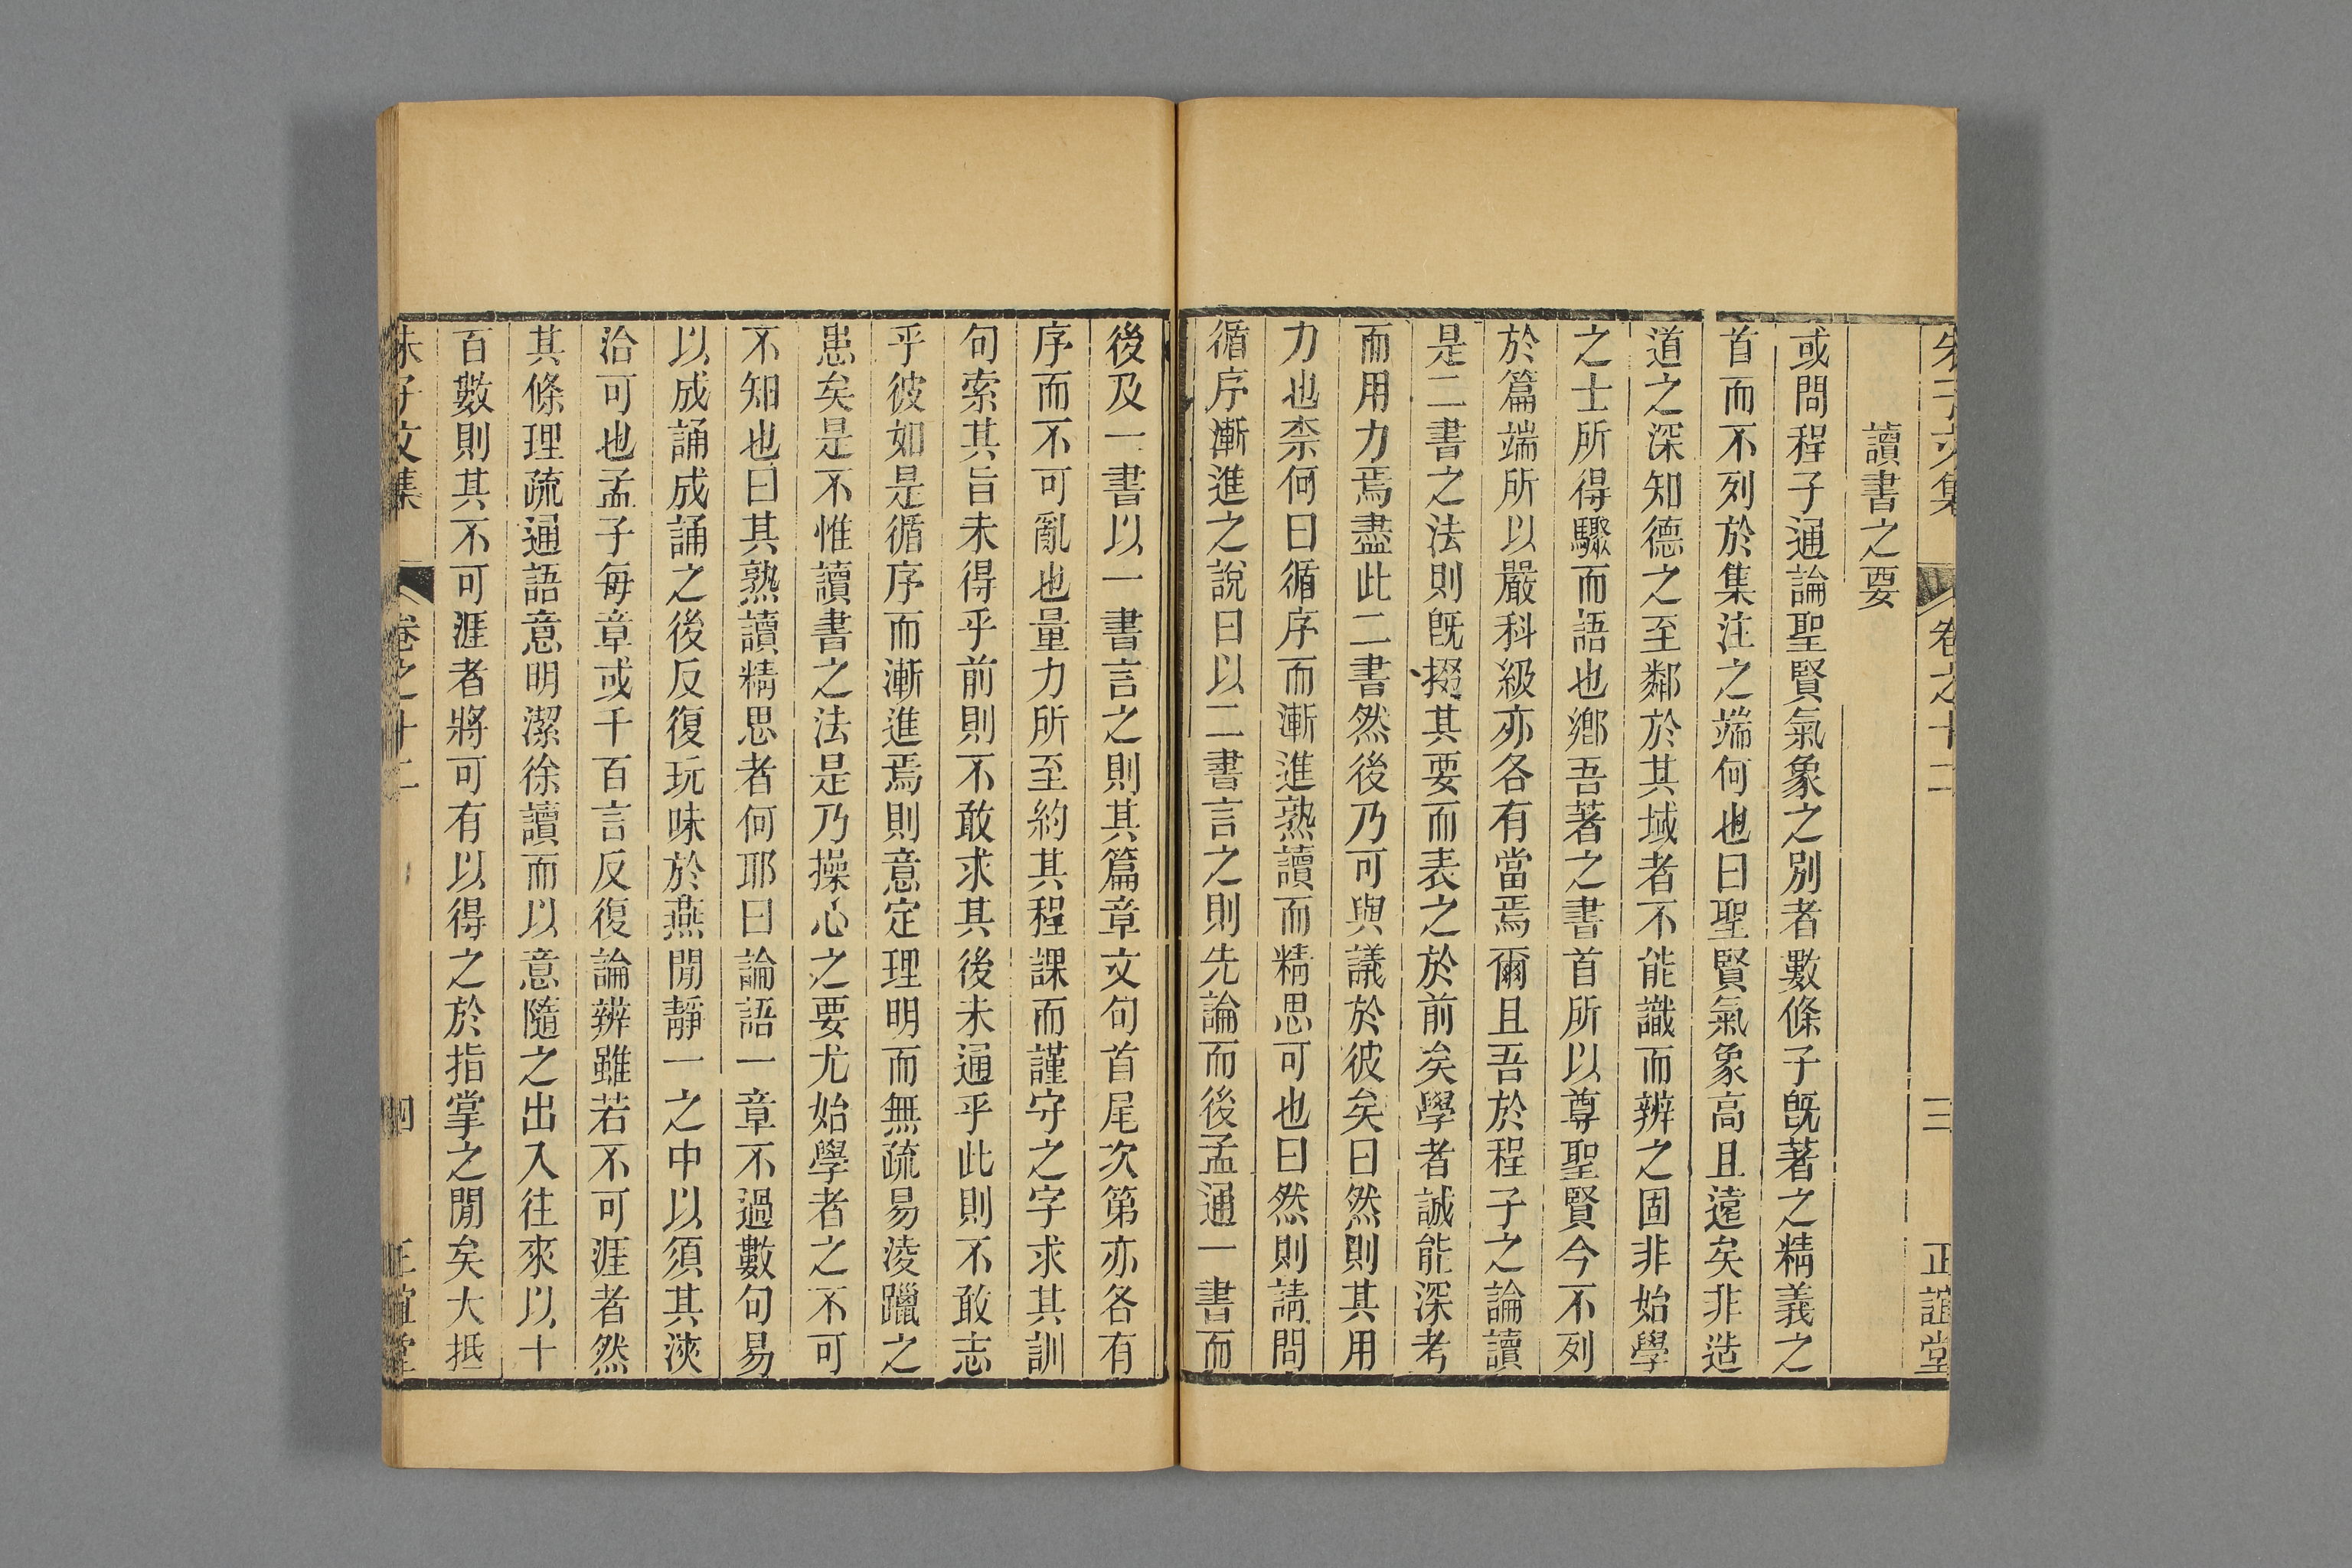 朱子文集 卷之十二 三 正誼堂
讀書之要
或問程子通論聖賢氣象之別者數條子旣著之精義之
首而不列於集注之端何也曰聖賢氣象高且遠矣非造
道之深知德之至鄰於其域者不能識而辨之固非始學
之士所得驟而語也鄉吾著之書首所以尊聖賢今不列
於篇端所以嚴科級亦各有當焉爾且吾於程子之論讀
是二書之法則旣掇其要而表之於前矣學者誠能深考
而用力焉盡此二書然後乃可與議於彼矣曰然則其用
力也柰何曰循序而漸進熟讀而精思可也曰然則請問
循序漸進之說曰以二書言之則先論而後孟通一書而
後及一書以一書言之則其篇章文句首尾次第亦各有
序而不可亂也量力所至約其程課而謹守之字求其訓
句索其旨未得乎前則不敢求其後未通乎此則不敢志
乎彼如是循序而漸進焉則意定理明而無疏易淩躐之
患矣是不惟讀書之法是乃操心之要尤始學者之不可
不知也曰其熟讀精思者何耶曰論語一章不過數句易
以成誦成誦之後反復玩味於燕閒靜一之中以須其浹
洽可也孟子每章或千百言反復論辨雖若不可涯者然
其條理疏通語意明潔徐讀而以意隨之出入往來以十
百數則其不可涯者將可有以得之於指掌之閒矣大抵
朱子文集 卷之十二 四 正誼堂